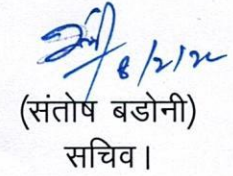 8/2/22
(संतोष बडोनी)
सचिव।